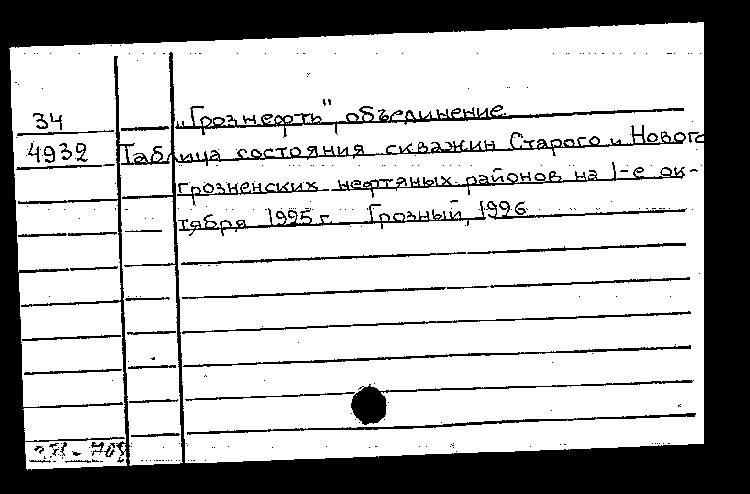 34 „Грознефть", объединение
4932 Таблица состояния скважин Старого и Нового
грозненских нефтяных районов на 1-е ок-
тября 1925 г. Грозный, 1926